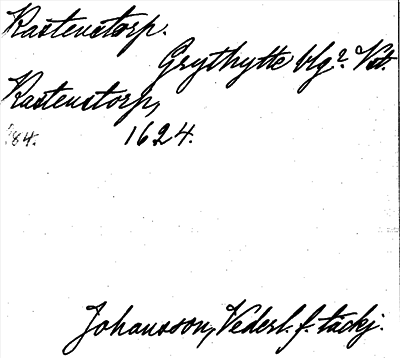 Kastenstorp.
Grythytte blg? Vst.
Kastenstorp,
'84. 1624.
Johansson, Vederl. f. tackj.